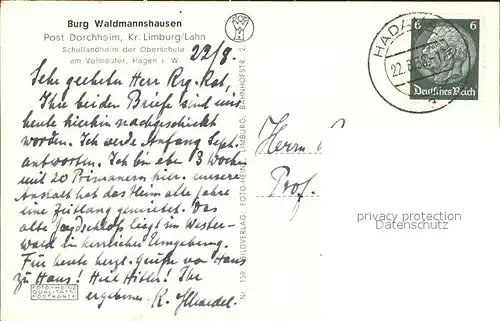 Burg Waldmannshausen
Post Dorchheim, Kr. Limburg/Lahn
Schullandheim der Oberschule
am Volmeufer, Hagen i. W.
22/8.
Sehr geehrter Herr Rrg.-Rat.
Ihre beiden Briefe sind mir
heute hierhin nachgeschickt
worden. Ich werde Anfang Sept.
antworten. Ich bin ebe 3 Wochen
mit 20 Primanern hier. unsere
Anstalt hat das Heim alle Jahre
eine Zeitlang gemietet. Das
alte Jagdschloß liegt im Wester-
wald in herrlicher Umgebung.
Für heute herzl. Grüße von Haus
zu Haus! Heil Hitler! Ihr
ergebener K.
FOTO-HEINZ
QUALITÄTS-
POSTKARTE
Nr. 159 BILDVERLAG: FOTO-HEINZ LIMBURG, BAHNHOFSTR. 2
HADAMAR
22.8
6
Deutsches Reich
Herrn
Prof.
privacy protection
Datenschutz